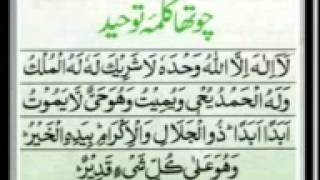 چوتھا کلمہ توحید
لَآ اِلٰهَ اِلَّا اللّٰهُ وَحْدَهٗ لَا شَرِيْكَ لَهٗ لَهُ الْمُلْكُ
وَلَهُ الْحَمْدُ يُحْيٖ وَيُمِيْتُ وَهُوَ حَیٌّ لَّا يَمُوْتُ
اَبَدًا اَبَدًا ؕ ذُو الْجَلَالِ وَالْاِكْرَامِ بِيَدِهِ الْخَيْرُ ؕ
وَهُوَ عَلٰى كُلِّ شَیْءٍ قَدِيْرٌ ؕ